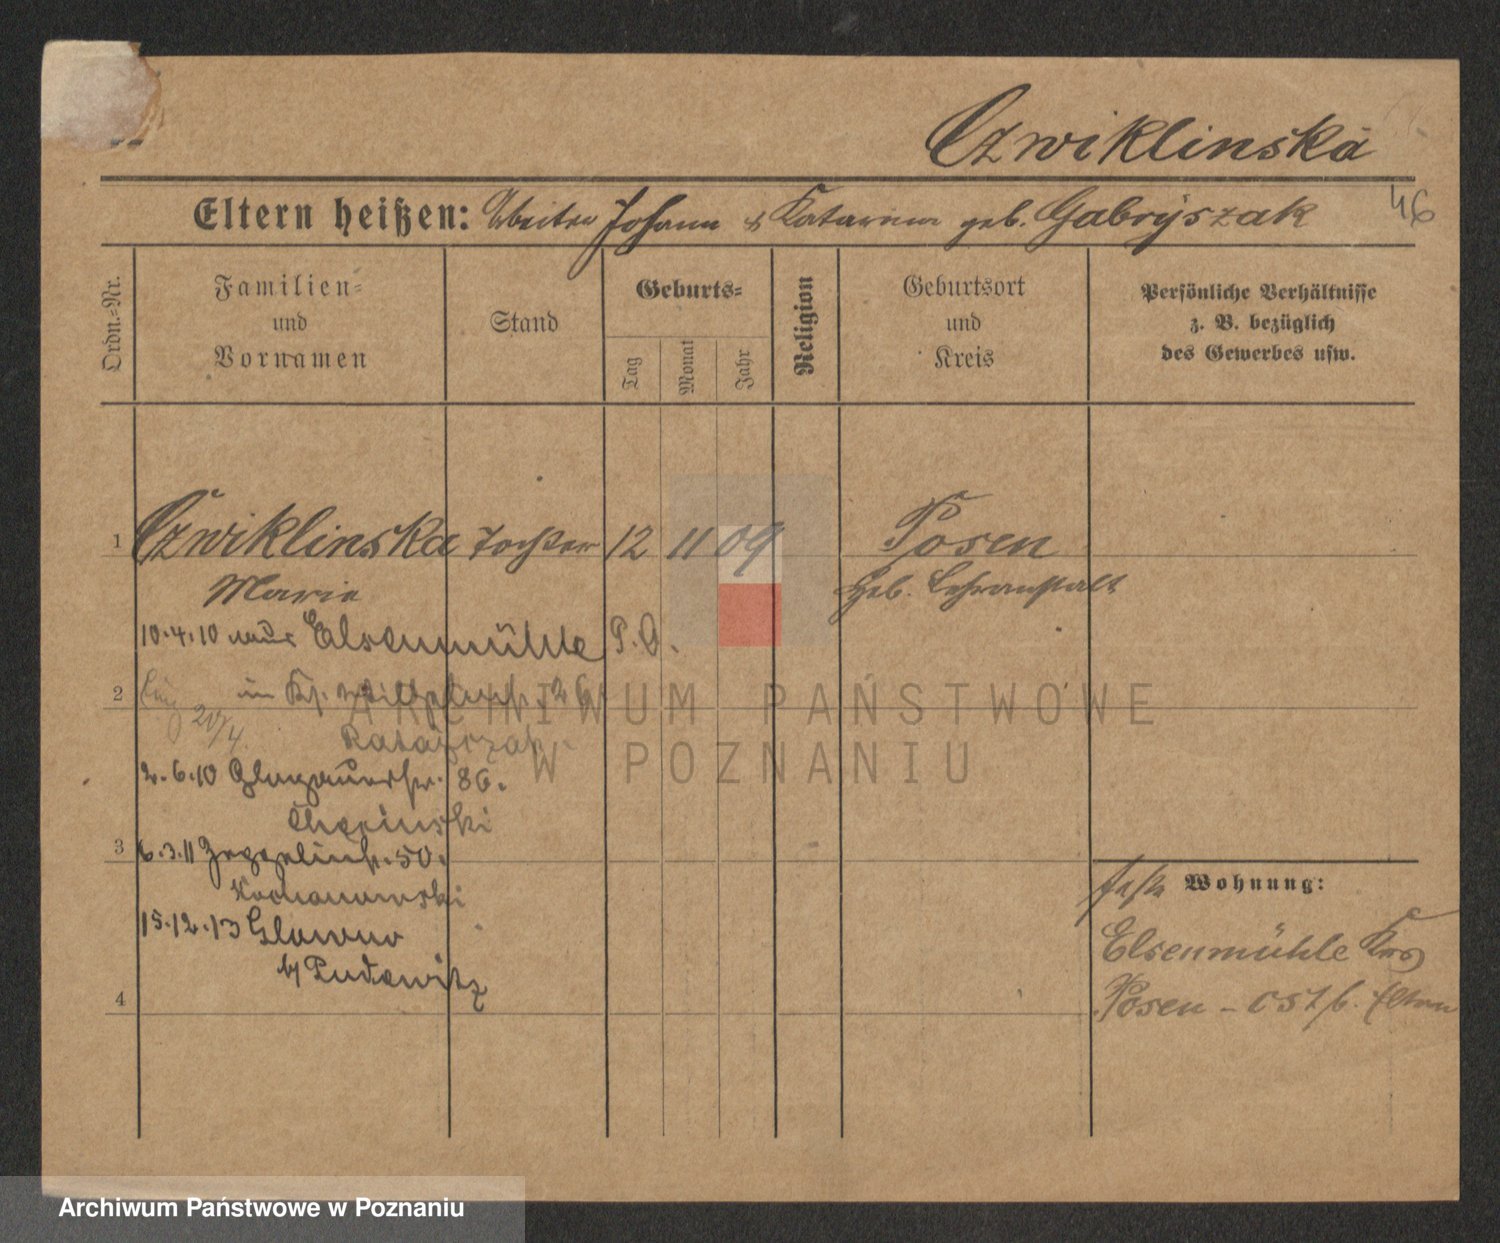 Czwiklinska
Eltern heißen: Arbeiter Johann & Katarina geb. Gabryszak
46
Ordn.-Nr.
Familien-
und
Vornamen
Stand
Geburts-
Tag
Monat
Jahr
Religion
Geburtsort
und
Kreis
Persönliche Verhältnisse
z. B. bezüglich
des Gewerbes usw.
1 Czwiklinska Tochter 12 11 09 Posen
Marie Geb. Lehranstalt
10.4.10 nach Elsenmühle P.O.
2 im
20/4. Ratajczak
2.6.10 Glogauerstr. 86.
3 6.3.11 Zeppelinstr. 50.
Kochanowski
15.12.13 Glowno
b/ Pudewitz
4
Wohnung:
Elsenmühle Krs
Posen - Ost b. Eltern
ARCHIWUM PAŃSTWOWE
W POZNANIU
Archiwum Państwowe w Poznaniu